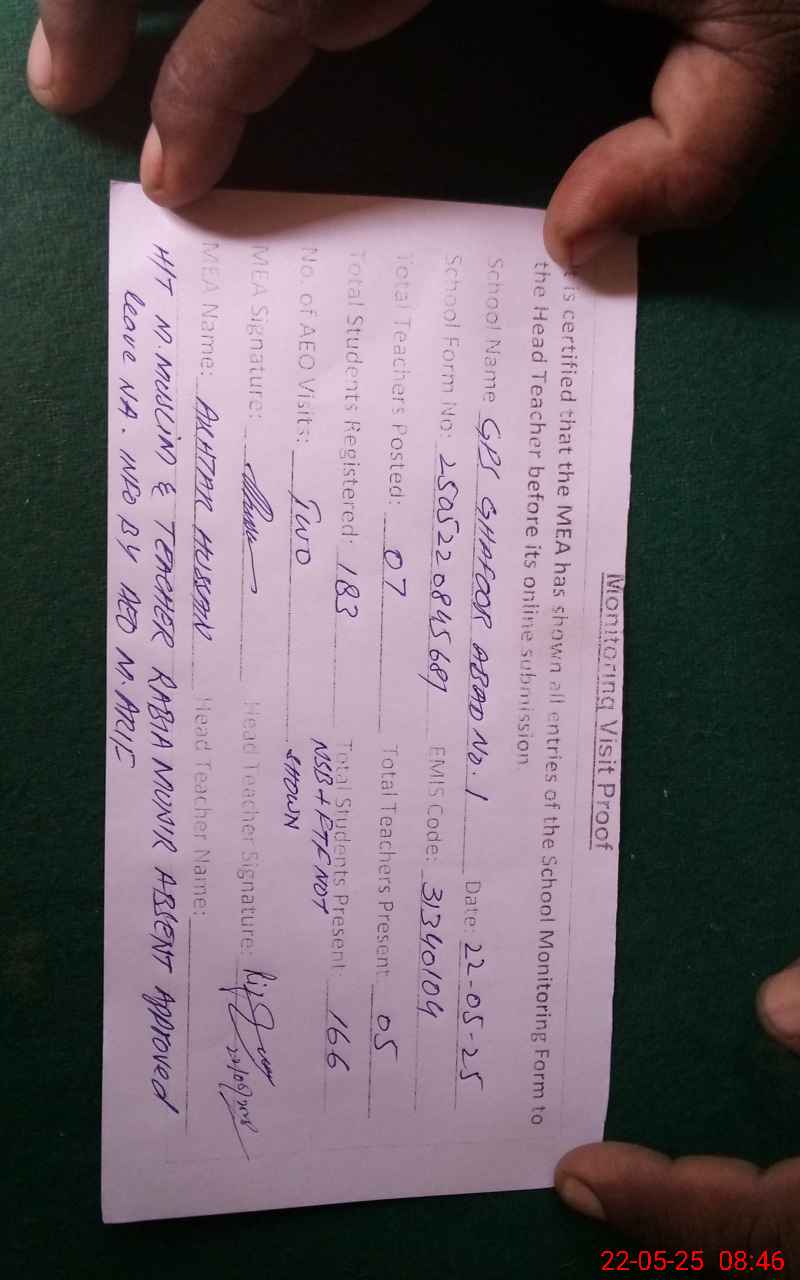 Monitoring Visit Proof
It is certified that the MEA has shown all entries of the School Monitoring Form to
the Head Teacher before its online submission
School Name GPS GHAFOOR ABAD No. 1 Date: 22-05-25
School Form No: 250522084568 EMIS Code: 31340109
Total Teachers Posted: 07 Total Teachers Present 05
Total Students Registered: 183 Total Students Present: 166
NSB + FTF NOT
No. of AEO Visits: Two SHOWN
MEA Signature: Head Teacher Signature:
MEA Name: AKHTAR HUSSAN Head Teacher Name:
H/T M. MUSLIM & TEACHER RABIA MUNIR ABSENT APPROVED
leave NA. INFO BY AEO M. ARIF
22-05-25 08:46